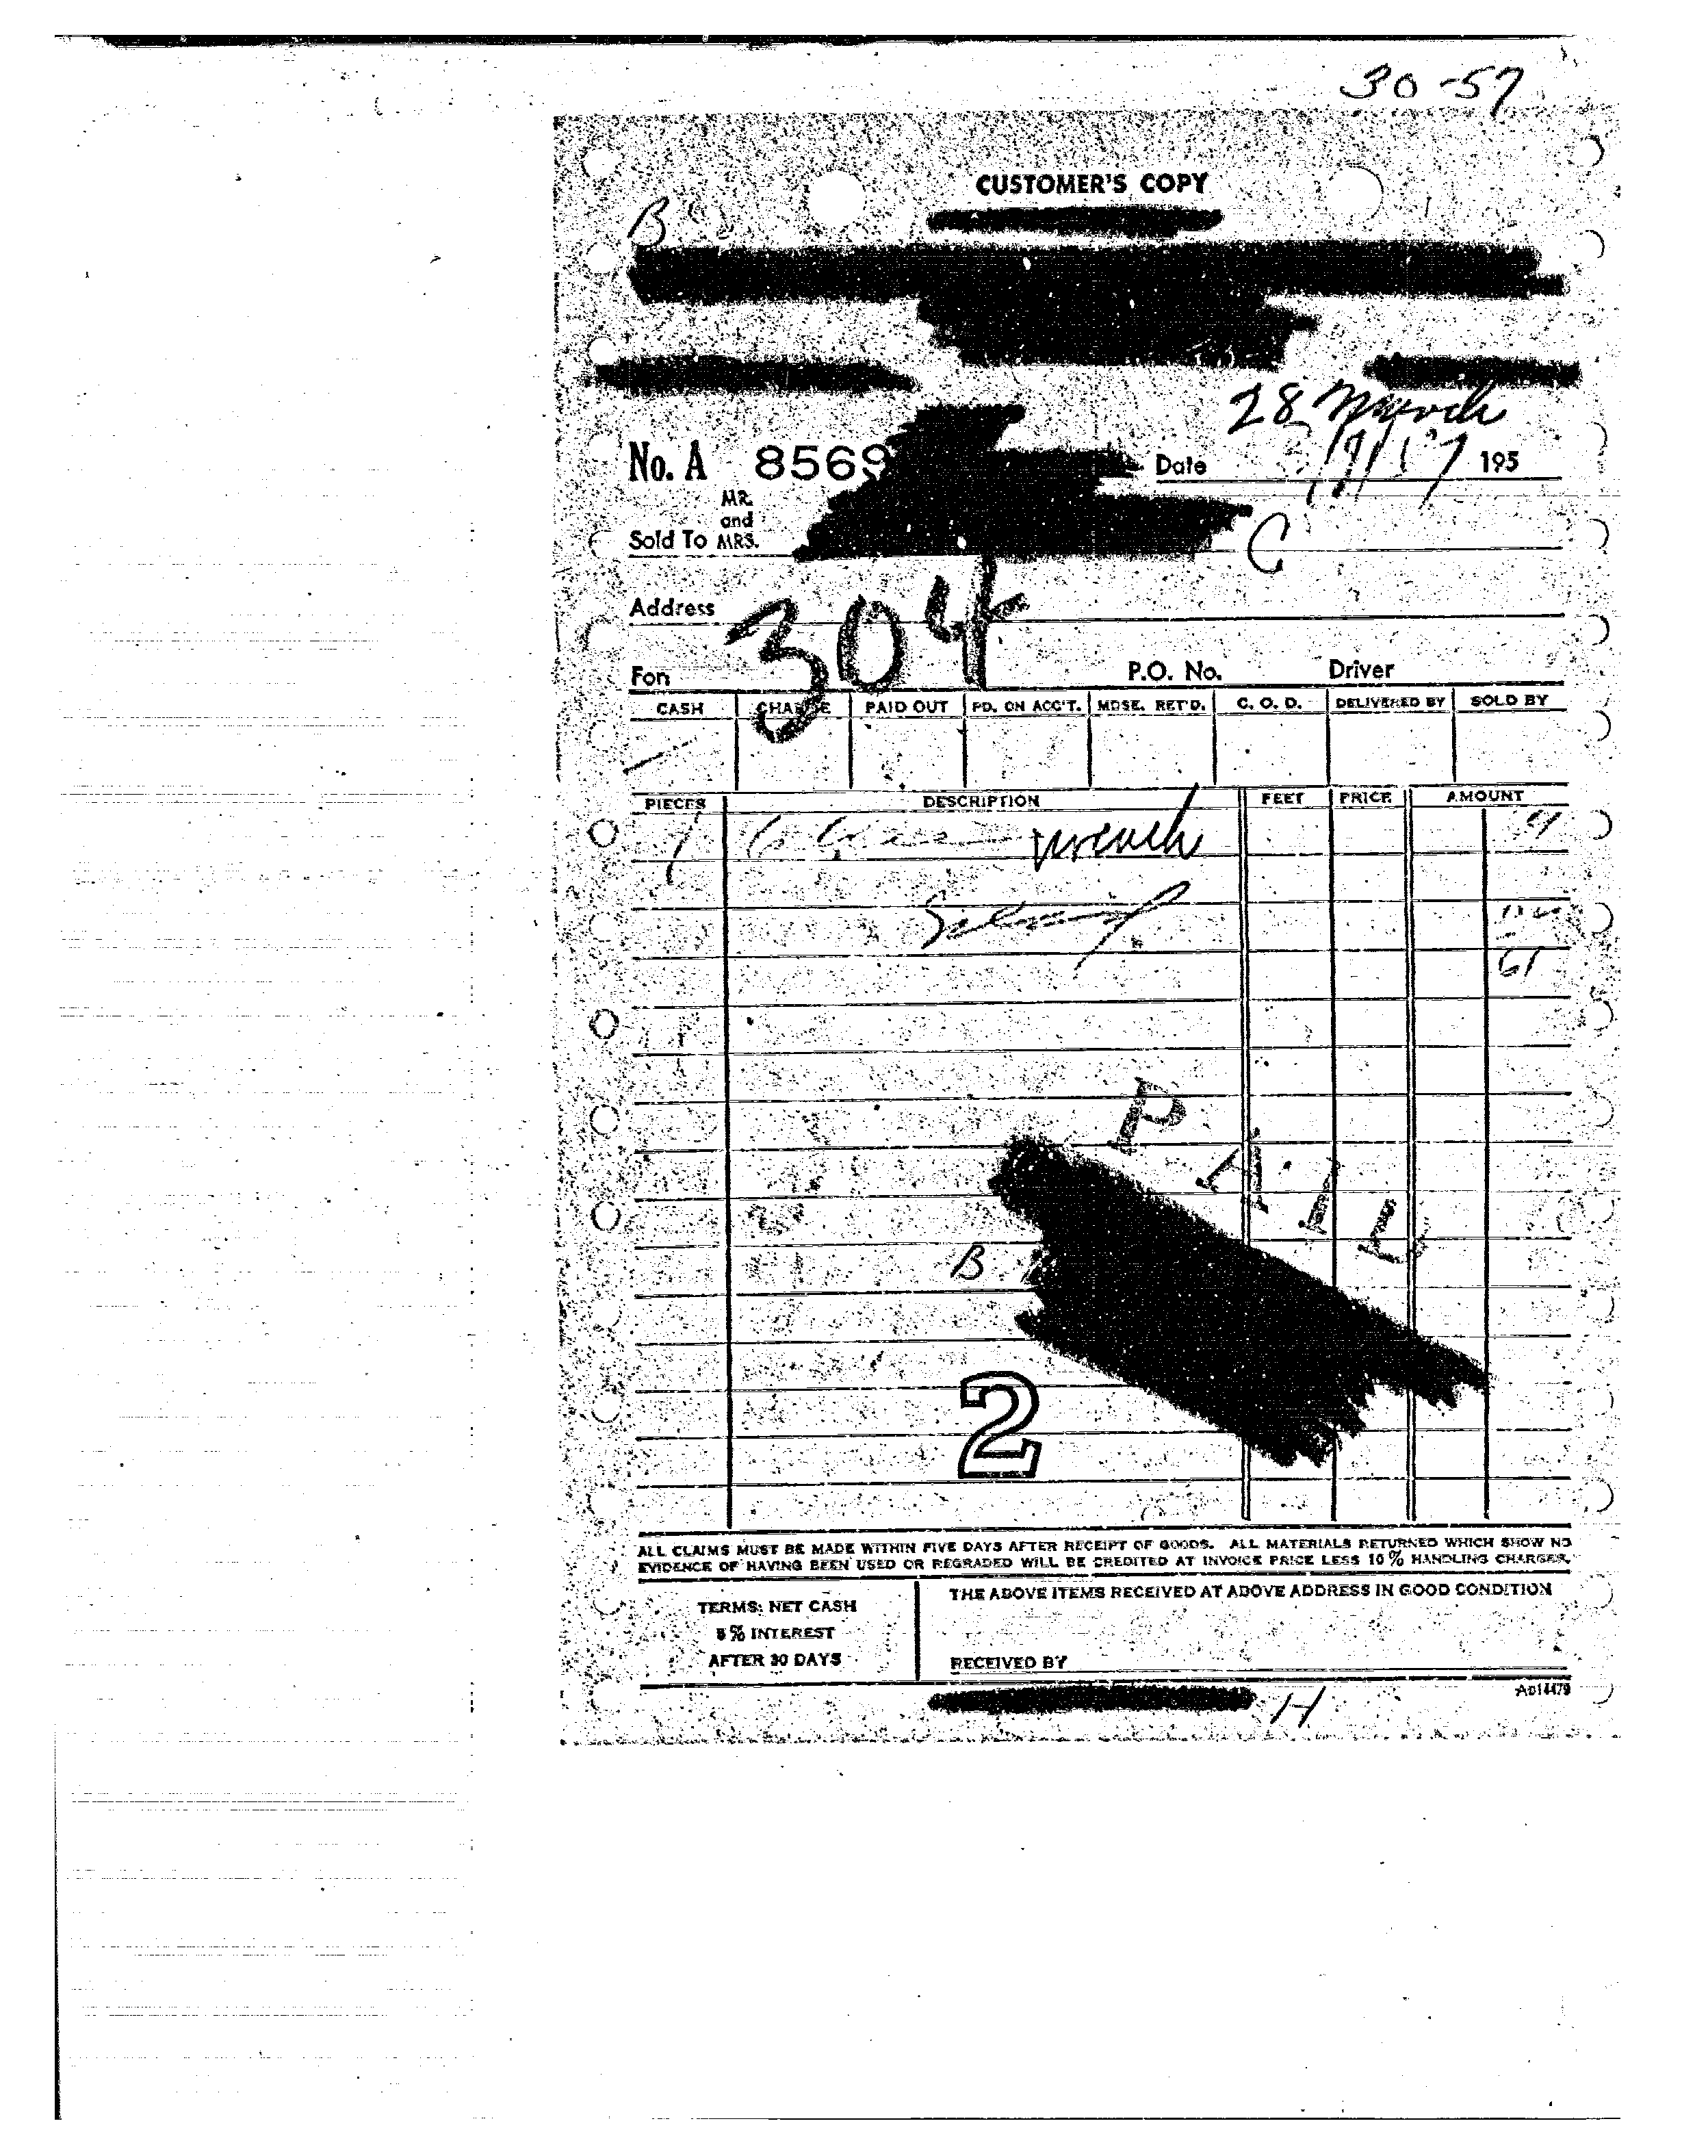 30-57
CUSTOMER'S COPY
B
28 March
No. A 8569
Date 195
MR.
and
Sold To MRS.
C
Address
304
For P.O. No. Driver
CASH CHARGE PAID OUT PD. ON ACC'T. MDSE. RET'D. C. O. D. DELIVERED BY SOLD BY
PIECES DESCRIPTION FEET PRICE AMOUNT
1 wrench
61
PAID
B
2
ALL CLAIMS MUST BE MADE WITHIN FIVE DAYS AFTER RECEIPT OF GOODS. ALL MATERIALS RETURNED WHICH SHOW NO
EVIDENCE OF HAVING BEEN USED OR REGRADED WILL BE CREDITED AT INVOICE PRICE LESS 10% HANDLING CHARGES.
TERMS: NET CASH
8% INTEREST
AFTER 30 DAYS
THE ABOVE ITEMS RECEIVED AT ABOVE ADDRESS IN GOOD CONDITION
RECEIVED BY
AD14479
H